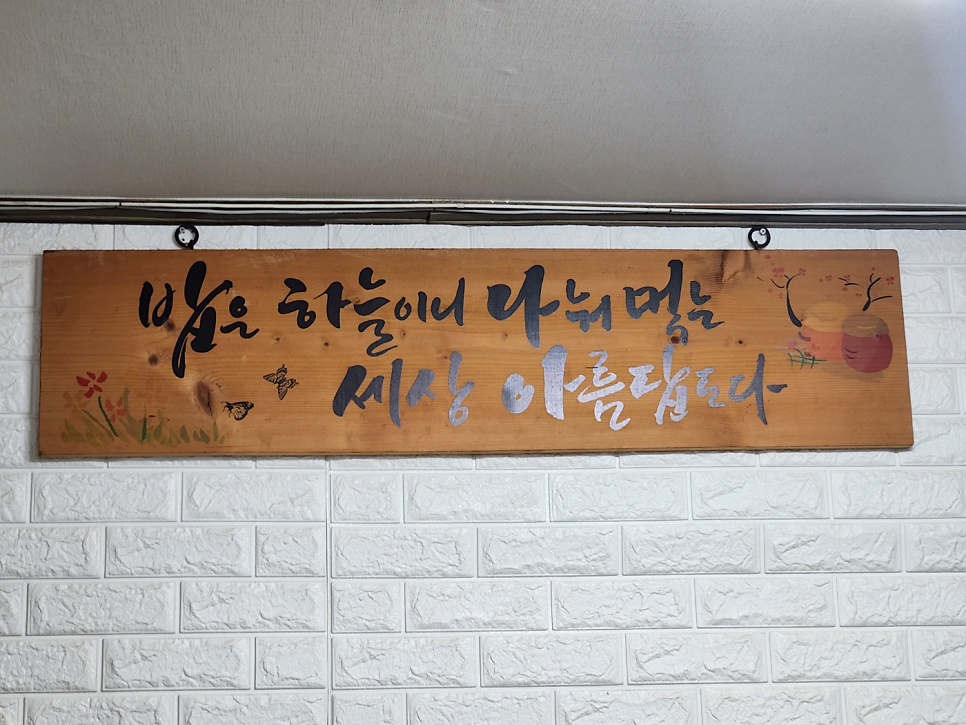 밥은 하늘이니 나눠 먹는
세상 아름답도다